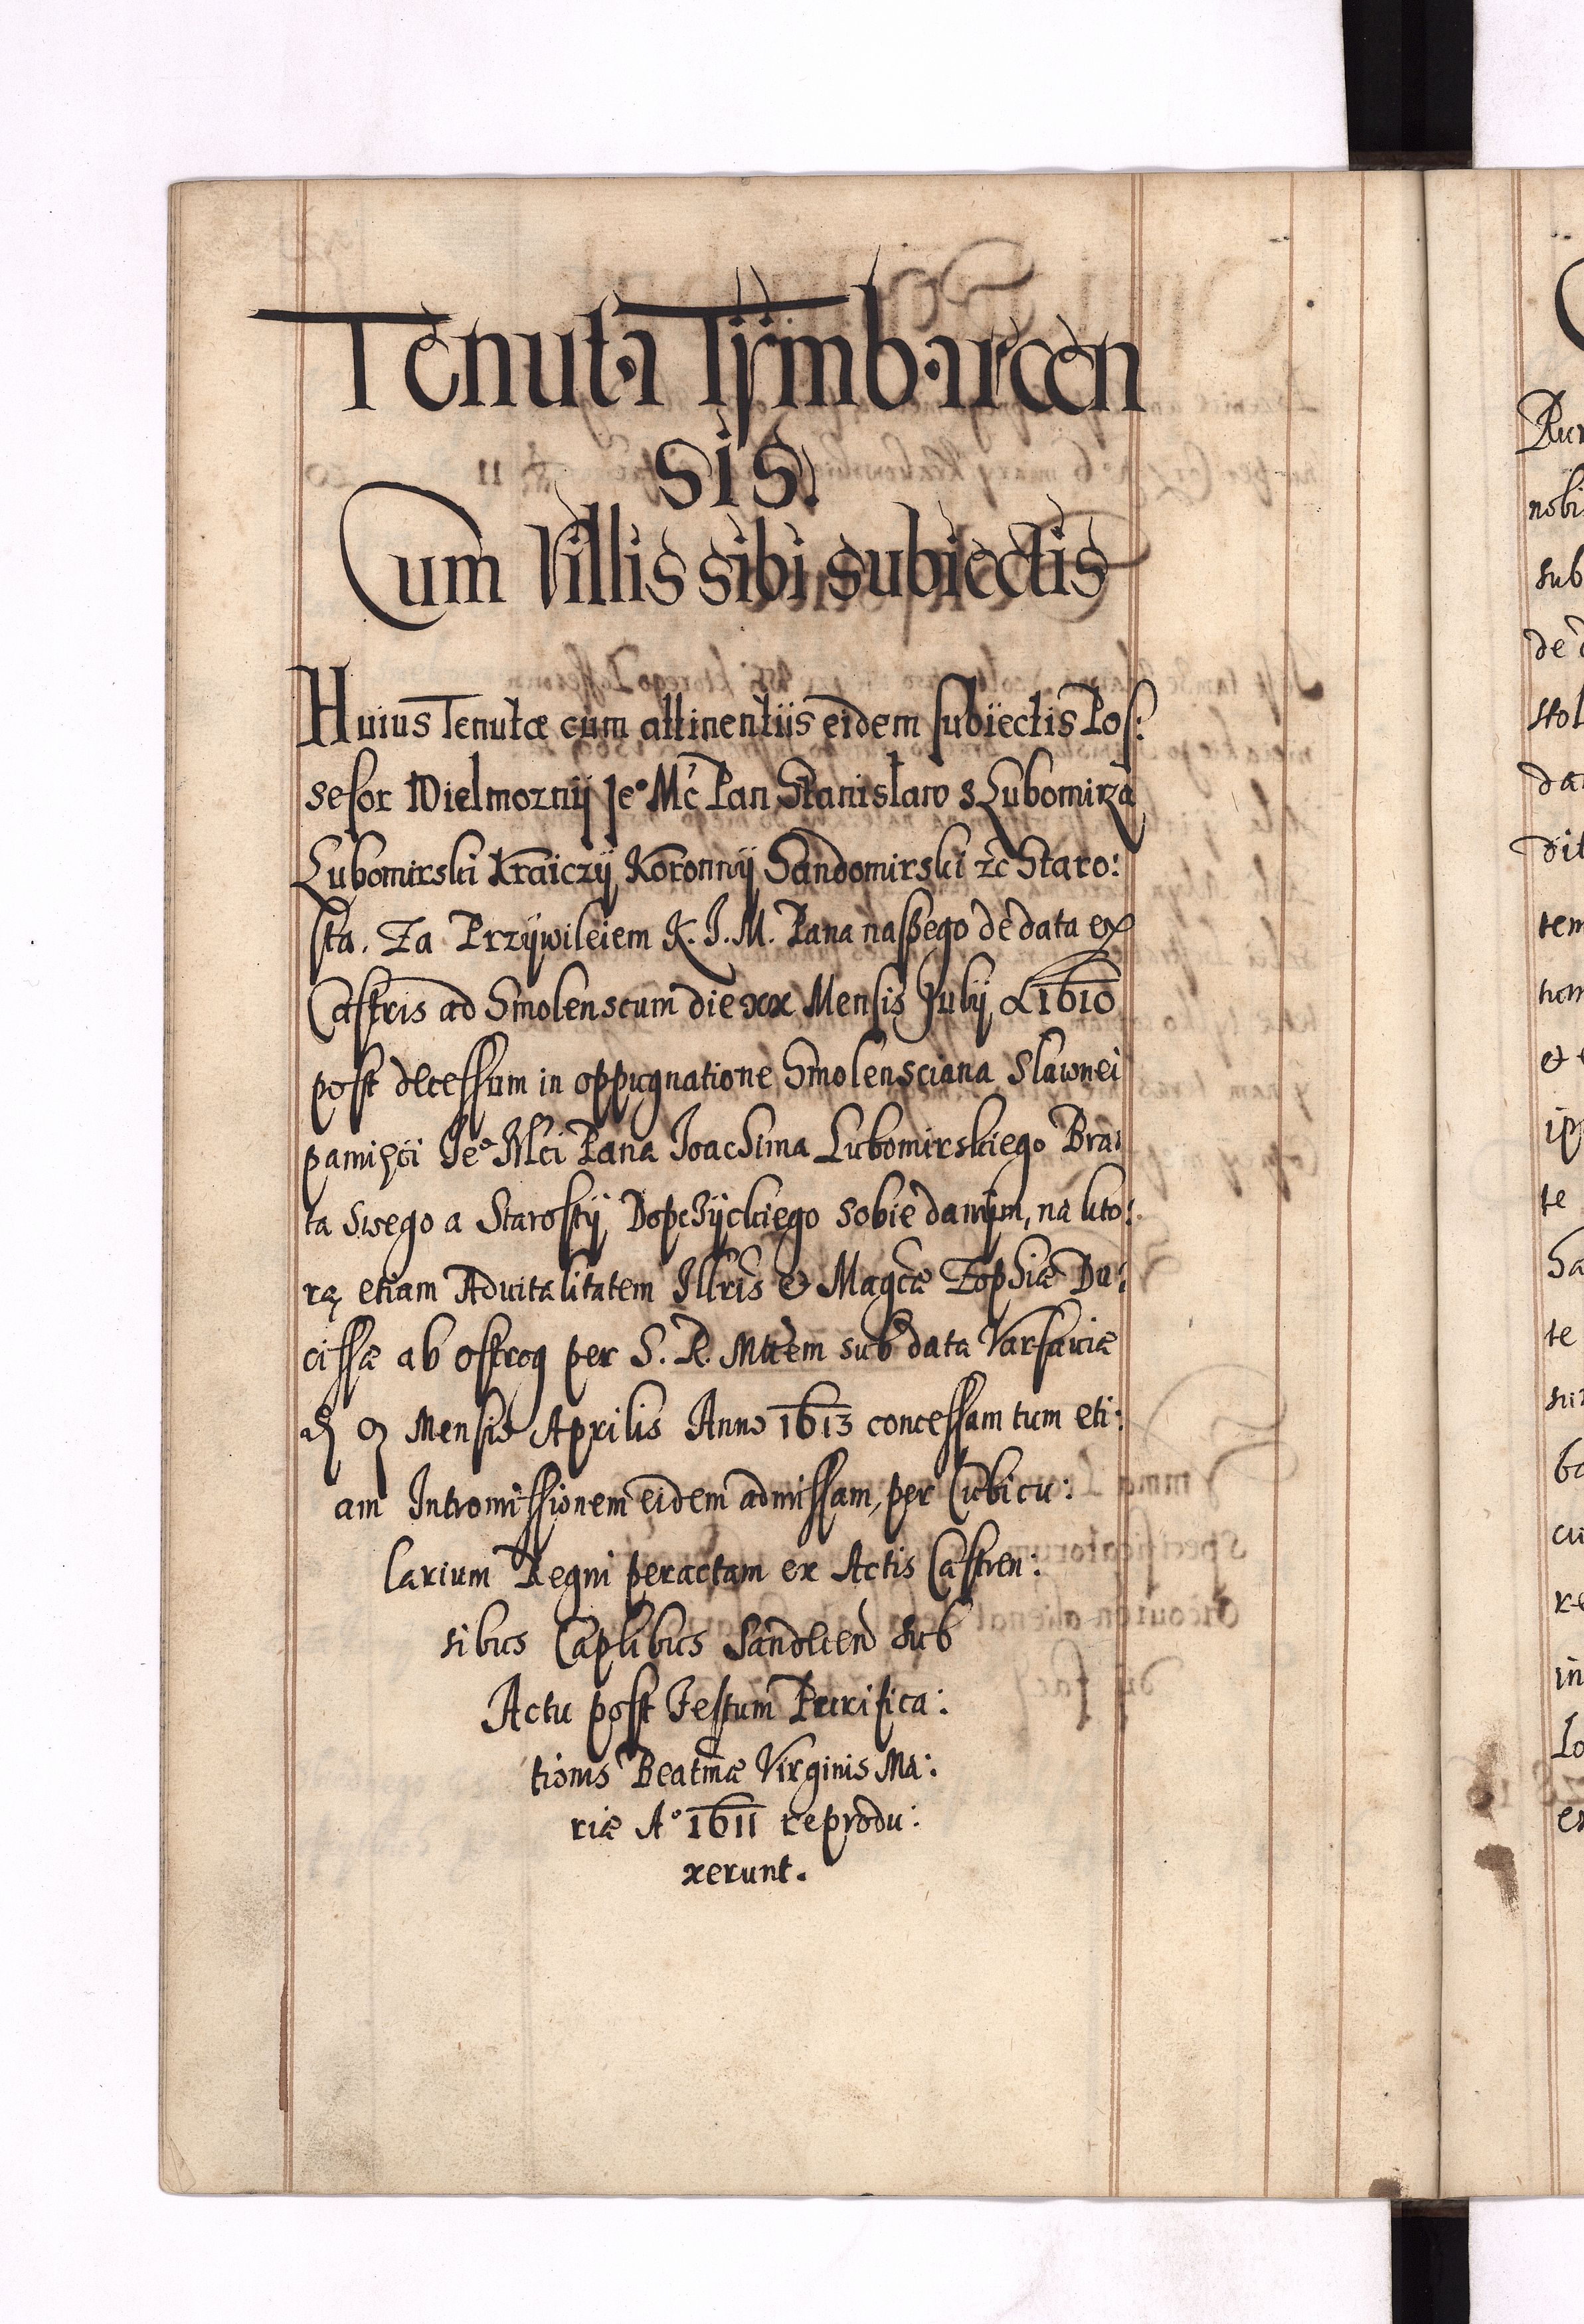 Tenuta Tijmbarcen
sis.
Cum Villis sibi subiectis
Huius Tenutæ cum attinentiis eidem subiectis Pos:
sesor Wielmoznij Jeº Mć Pan Stanislaw s Lubomirza
Lubomirski Kraiczij Koronnij Sandomirski zc Staro:
sta. Za Przijwileiem K. J. M. Pana naszego de data ex
Castris ad Smolenscum die xx Mensis Julij 1610
post decessum in oppugnatione Smolensciana Slawnei
pamięci Jeº Mci Pana Joachima Lubomirskiego Bra:
ta swego a Starostij Dopchijckiego sobie danijm, na kto:
rą etiam Aduitalitatem Illris & Magcæ Zophiæ Du:
cissæ ab ostrog per S. R. Mttem sub data Varsauiæ
Mensis Aprilis Anno 1613 concessam tum eti:
am Intromissionem eidem admissam, per Cubicu:
larium Regni peractam ex Actis Castren:
sibus Caplibus Sandecen sub
Actu post Festum Purifica:
tionis Beatmæ Virginis Ma:
riæ Aº 1611 reprodu:
xerunt.